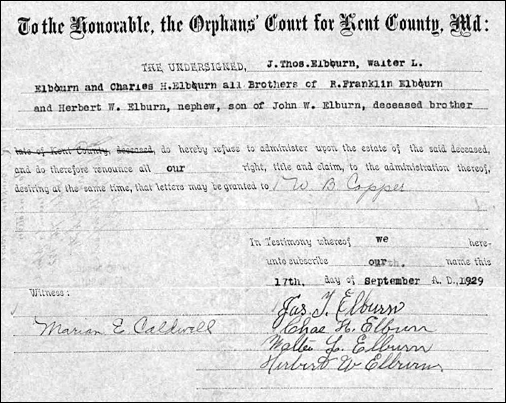 To the Honorable, the Orphans' Court for Kent County, Md:
THE UNDERSIGNED, J.Thos.Elbourn, Walter L.
Elbourn and Charles H.Elbourn all Brothers of R.Franklin Elbourn
and Herbert W. Elburn, nephew, son of John W. Elburn, deceased brother
late of Kent County, deceased, do hereby refuse to administer upon the estate of the said deceased,
and do therefore renounce all our right, title and claim, to the administration thereof,
desiring at the same time, that letters may be granted to W B Copper
In Testimony whereof we here-
unto subscribe our name this
17th. day of September A. D., 1929
Witness:
Marian E Caldwell
Jas. T. Elburn
Chas H. Elburn
Walter L. Elburn
Herbert W Elburn